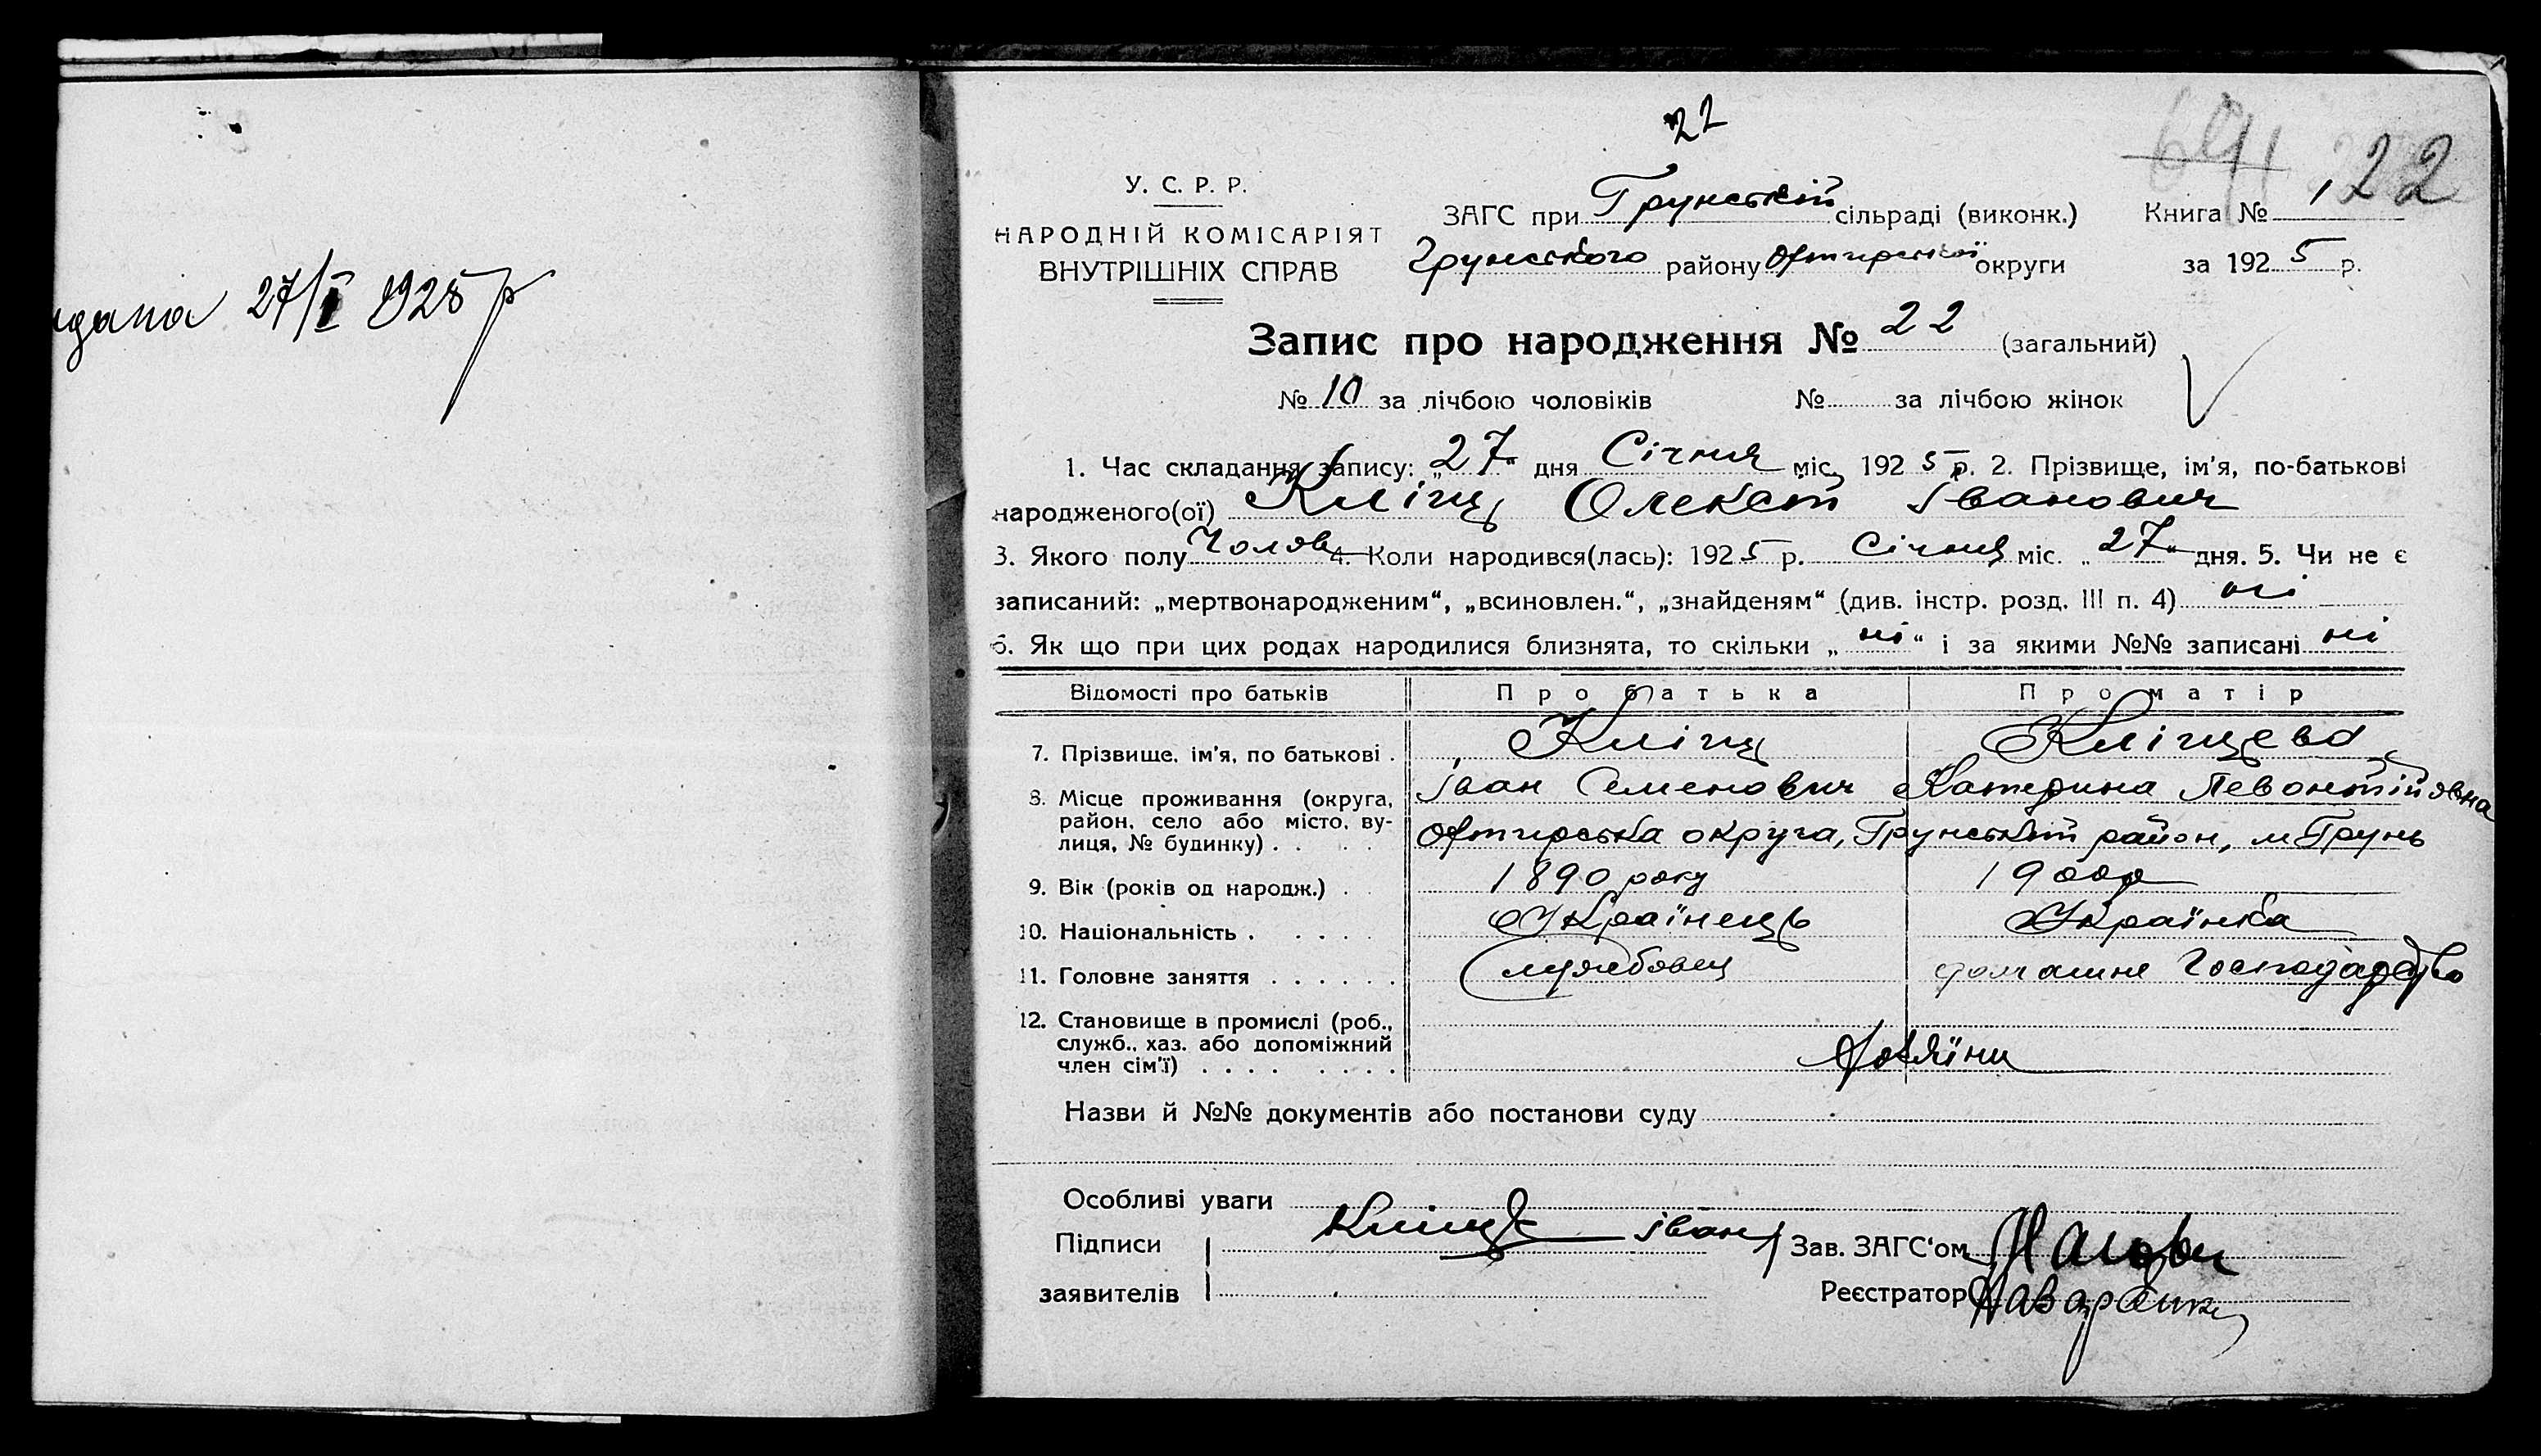 27/I 1925 р
22
У. С. Р. Р.
НАРОДНІЙ КОМІСАРІЯТ
ВНУТРІШНІХ СПРАВ
ЗАГС при Грунській сільраді (виконк.)
Грунського району Охтирської округи
Книга № 1
22
за 1925 р.
Запис про народження № 22 (загальний)
№ 10 за лічбою чоловіків № за лічбою жінок
1. Час складання запису: „27“ дня Січня міс. 1925 р. 2. Прізвище, ім'я, по-батькові
народженого(ої) Кліщ Олексій Іванович
3. Якого полу Чолов 4. Коли народився(лась): 1925 р. Січня міс. „27“ дня. 5. Чи не є
записаний: „мертвонародженим“, „всиновлен.“, „знайденям“ (див. інстр. розд. III п. 4) ні
6. Як що при цих родах народилися близнята, то скільки „ні“ і за якими №№ записані ні
Відомості про батьків Про батька Про матір
7. Прізвище, ім'я, по батькові . Кліщ Кліщева
Іван Семенович Катерина Левонтійовна
8. Місце проживання (округа,
район, село або місто, ву-
лиця, № будинку) . . . Охтирська округа, Грунський район, м Грунь
9. Вік (років од народж.) . 1890 року 1900р
10. Національність . . . . . Українець Українка
11. Головне заняття . . . . . . Службовец домашне господарство
12. Становище в промислі (роб.,
служб., хаз. або допоміжний
член сім'ї) . . . . . . . .
Назви й №№ документів або постанови суду
Особливі уваги
Підписи
заявителів
Кліщ Іван
Зав. ЗАГС'ом
Реєстратор